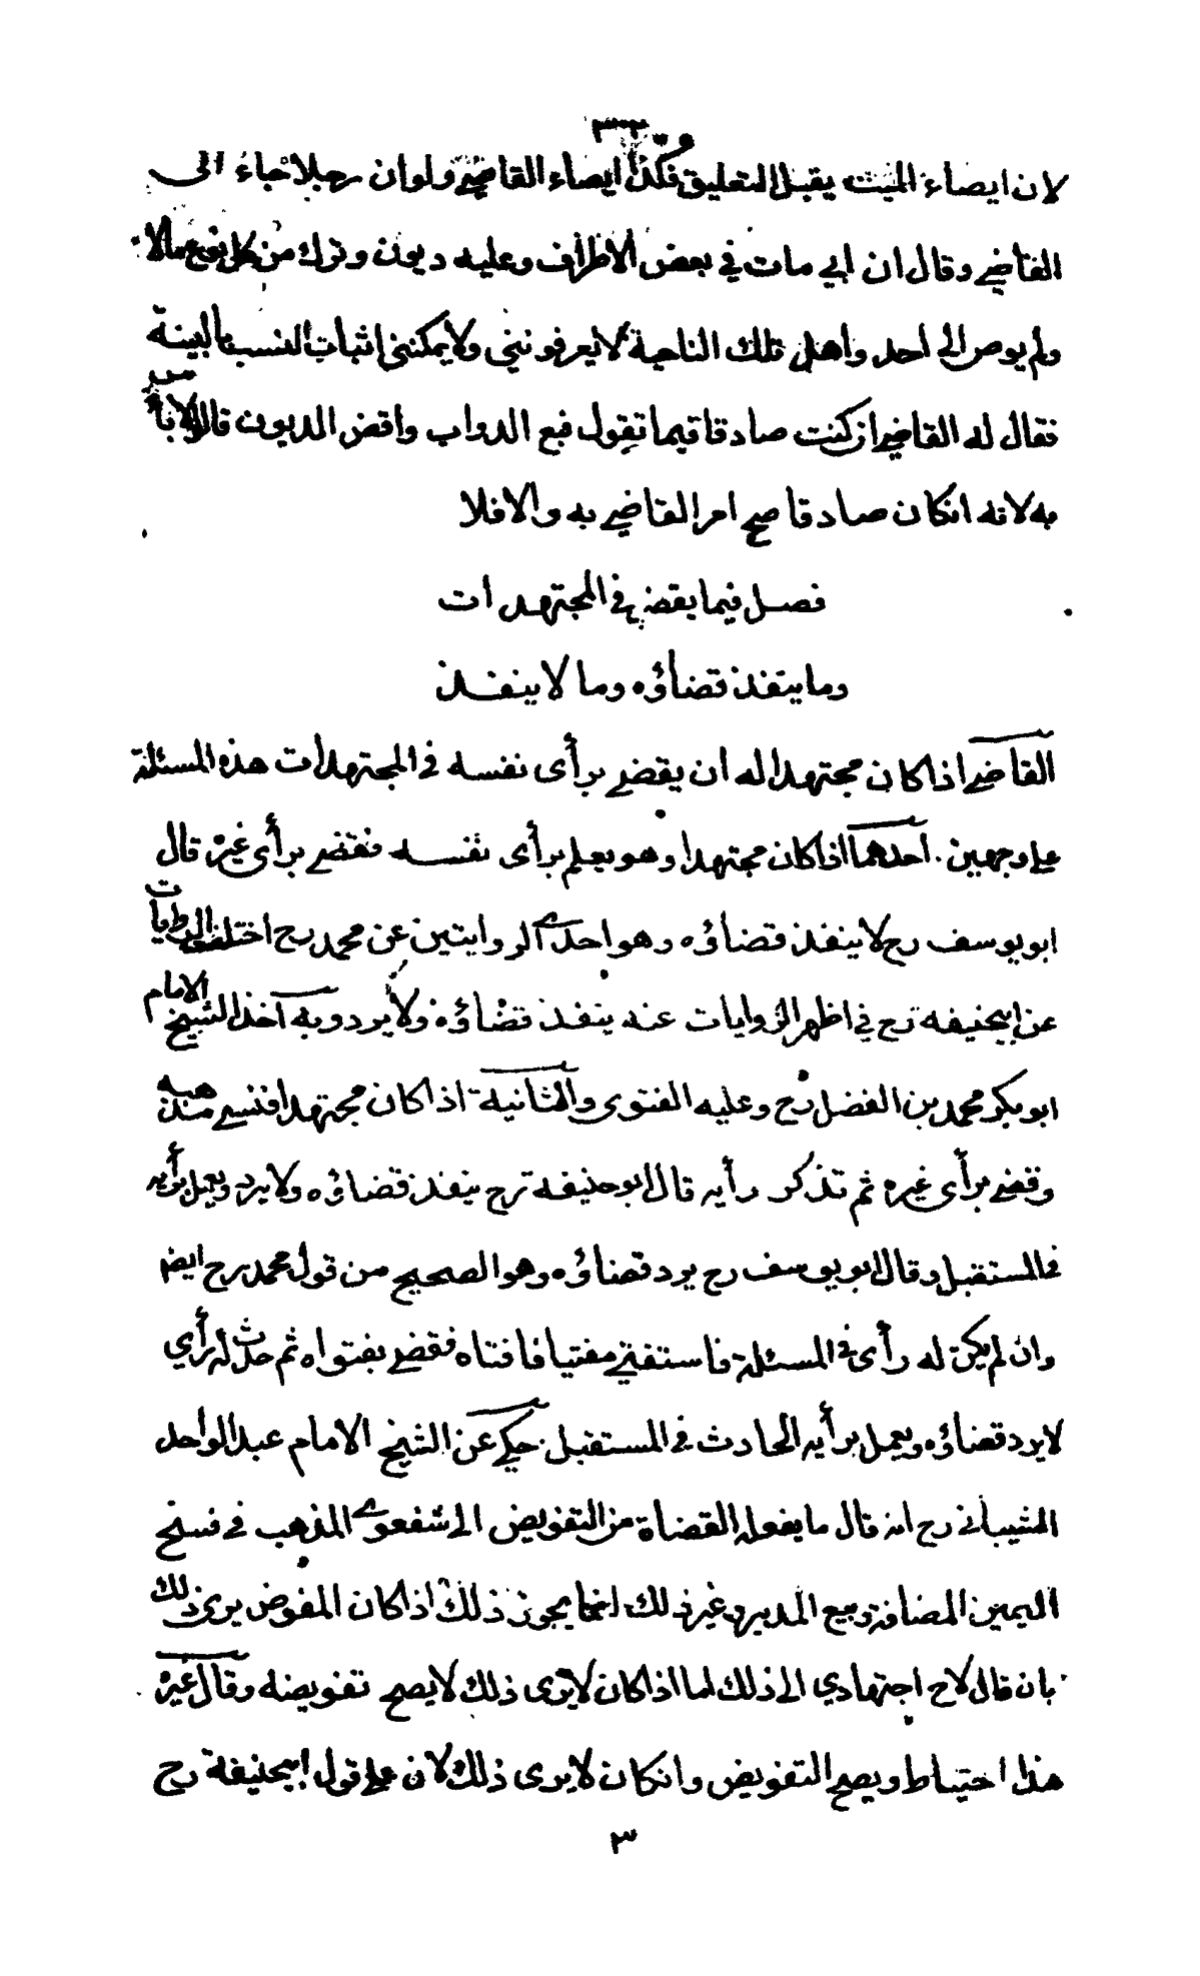 ٣٣
لان ايصاء الميت يقبل التعليق فكذا ايصاء القاضي ولو ان رجلا جاء الى
القاضي وقال ان ابي مات في بعض الاطراف وعليه ديون وترك من كل نوع مالا
ولم يوص الى احد واهل تلك الناحية لا يعرفونني ولا يمكنني اثبات النسب بالبينة
فقال له القاضي ان كنت صادقا فيما تقول فبع الدواب واقض الديون قالوا لا بأس
به لانه انكان صادقا صح امر القاضي به والا فلا
فصل فيما يقضي في المجتهدات
وما ينفذ قضاؤه وما لا ينفذ
القاضي اذا كان مجتهدا له ان يقضي برأى نفسه في المجتهدات هذه المسئلة
على وجهين احدهما اذا كان مجتهدا وهو يعلم برأى نفسه فقضى برأى غيره قال
ابو يوسف رح لا ينفذ قضاؤه وهو احدى الروايتين عن محمد رح اختلفت الروايات
عن ابيحنيفة رح في اظهر الروايات عنه ينفذ قضاؤه ولا يرد وبه اخذ الشيخ الامام
ابو بكر محمد بن الفضل رح وعليه الفتوى والثانية اذا كان مجتهدا فنسي مذهبه
وقضى برأى غيره ثم تذكر رأيه قال ابو حنيفة رح ينفذ قضاؤه ولا يرد ويعمل برأيه
في المستقبل وقال ابو يوسف رح يرد قضاؤه وهو الصحيح من قول محمد رح ايض
وان لم يكن له رأى في المسئلة فاستفتى مفتيا فافتاه فقضى بفتواه ثم حدث له رأي
لا يرد قضاؤه ويعمل برأيه الحادث في المستقبل حكي عن الشيخ الامام عبد الواحد
الشيباني رح انه قال ما يفعله القضاة من التفويض الى شفعوى المذهب في فسخ
اليمين المضافة وبيع المدبر وغير ذلك انما يجوز ذلك اذا كان المفوض يرى ذلك
بان قال لاح اجتهادي الى ذلك اما اذا كان لا يرى ذلك لا يصح تفويضه وقال غيره
هذا احتياط ويصح التفويض وانكان لا يرى ذلك لان على قول ابيحنيفة رح
٣